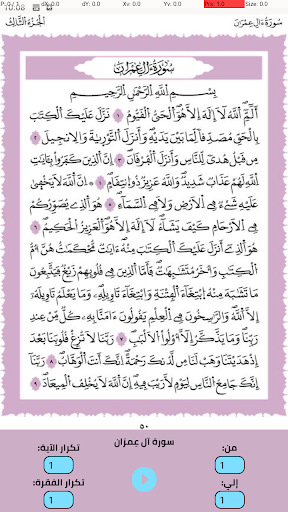 10:08
P: 0 / 1 dX: 0.0 dY: 0.0 Xv: 0.0 Yv: 0.0 Prs: 1.0 Size: 0.0
سُورَةُ ءَالِ عِمۡرَانَ الجُزءُ الثَّالِثُ
سُورَةُ ءَالِ عِمۡرَانَ
بِسۡمِ ٱللَّهِ ٱلرَّحۡمَٰنِ ٱلرَّحِيمِ
الٓمٓ ٱللَّهُ لَآ إِلَٰهَ إِلَّا هُوَ ٱلۡحَيُّ ٱلۡقَيُّومُ ١ نَزَّلَ عَلَيۡكَ ٱلۡكِتَٰبَ
بِٱلۡحَقِّ مُصَدِّقٗا لِّمَا بَيۡنَ يَدَيۡهِ وَأَنزَلَ ٱلتَّوۡرَىٰةَ وَٱلۡإِنجِيلَ ٢
مِن قَبۡلُ هُدٗى لِّلنَّاسِ وَأَنزَلَ ٱلۡفُرۡقَانَ ٣ إِنَّ ٱلَّذِينَ كَفَرُواْ بِـَٔايَٰتِ
ٱللَّهِ لَهُمۡ عَذَابٞ شَدِيدٞ وَٱللَّهُ عَزِيزٞ ذُو ٱنتِقَامٍ ٤ إِنَّ ٱللَّهَ لَا يَخۡفَىٰ
عَلَيۡهِ شَيۡءٞ فِي ٱلۡأَرۡضِ وَلَا فِي ٱلسَّمَآءِ ٥ هُوَ ٱلَّذِي يُصَوِّرُكُمۡ
فِي ٱلۡأَرۡحَامِ كَيۡفَ يَشَآءُ لَآ إِلَٰهَ إِلَّا هُوَ ٱلۡعَزِيزُ ٱلۡحَكِيمُ ٦
هُوَ ٱلَّذِيٓ أَنزَلَ عَلَيۡكَ ٱلۡكِتَٰبَ مِنۡهُ ءَايَٰتٞ مُّحۡكَمَٰتٌ هُنَّ أُمُّ
ٱلۡكِتَٰبِ وَأُخَرُ مُتَشَٰبِهَٰتٞ فَأَمَّا ٱلَّذِينَ فِي قُلُوبِهِمۡ زَيۡغٞ فَيَتَّبِعُونَ
مَا تَشَٰبَهَ مِنۡهُ ٱبۡتِغَآءَ ٱلۡفِتۡنَةِ وَٱبۡتِغَآءَ تَأۡوِيلِهِۦ وَمَا يَعۡلَمُ تَأۡوِيلَهُۥٓ
إِلَّا ٱللَّهُ وَٱلرَّٰسِخُونَ فِي ٱلۡعِلۡمِ يَقُولُونَ ءَامَنَّا بِهِۦ كُلّٞ مِّنۡ عِندِ
رَبِّنَا وَمَا يَذَّكَّرُ إِلَّآ أُوْلُواْ ٱلۡأَلۡبَٰبِ ٧ رَبَّنَا لَا تُزِغۡ قُلُوبَنَا بَعۡدَ
إِذۡ هَدَيۡتَنَا وَهَبۡ لَنَا مِن لَّدُنكَ رَحۡمَةً إِنَّكَ أَنتَ ٱلۡوَهَّابُ ٨ رَبَّنَآ
إِنَّكَ جَامِعُ ٱلنَّاسِ لِيَوۡمٖ لَّا رَيۡبَ فِيهِ إِنَّ ٱللَّهَ لَا يُخۡلِفُ ٱلۡمِيعَادَ ٩
٥٠
من: سورة آل عمران تكرار الآية:
1 1
إلي: تكرار الفقرة:
1 1